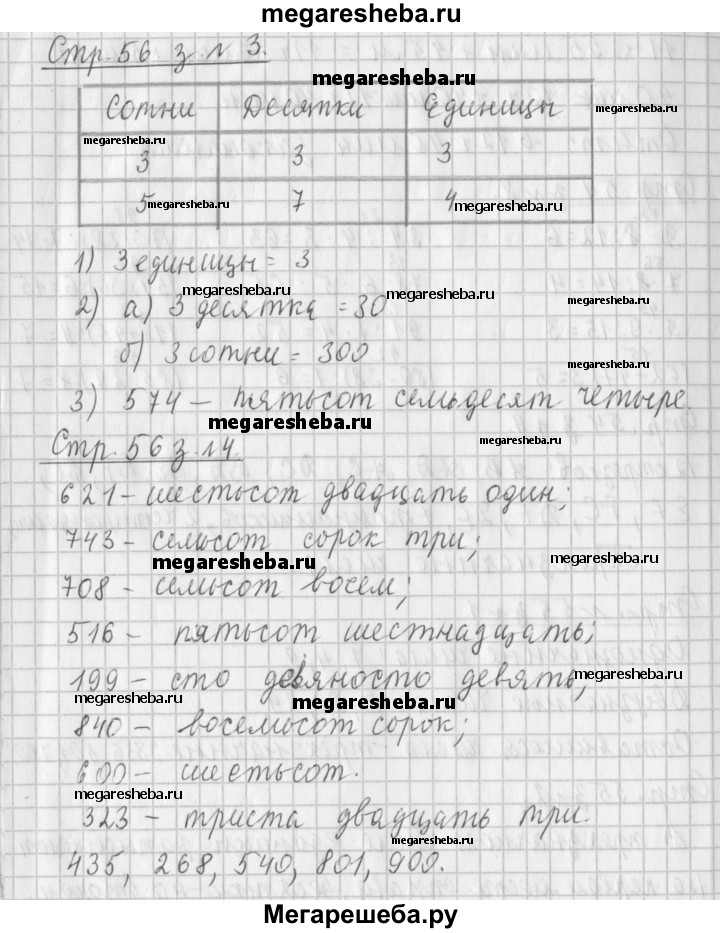 megaresheba.ru
Стр. 56 з. № 3.
megaresheba.ru
Сотни Десятки Единицы
megaresheba.ru
megaresheba.ru
3 3 3
5 7 4
megaresheba.ru
megaresheba.ru
1) 3 единицы = 3
megaresheba.ru
megaresheba.ru
megaresheba.ru
2) а) 3 десятка = 30
б) 3 сотни = 300
megaresheba.ru
3) 574 – пятьсот семьдесят четыре.
megaresheba.ru
Стр. 56 з. № 4.
megaresheba.ru
621 – шестьсот двадцать один;
743 – семьсот сорок три;
megaresheba.ru
megaresheba.ru
708 – семьсот восем;
516 – пятьсот шестнадцать;
199 – сто девяносто девять;
megaresheba.ru
megaresheba.ru
megaresheba.ru
840 – восемьсот сорок;
600 – шетьсот.
megaresheba.ru
323 – триста двадцать три.
megaresheba.ru
435, 268, 540, 801, 900.
megaresheba.ru
Мегарешеба.ру